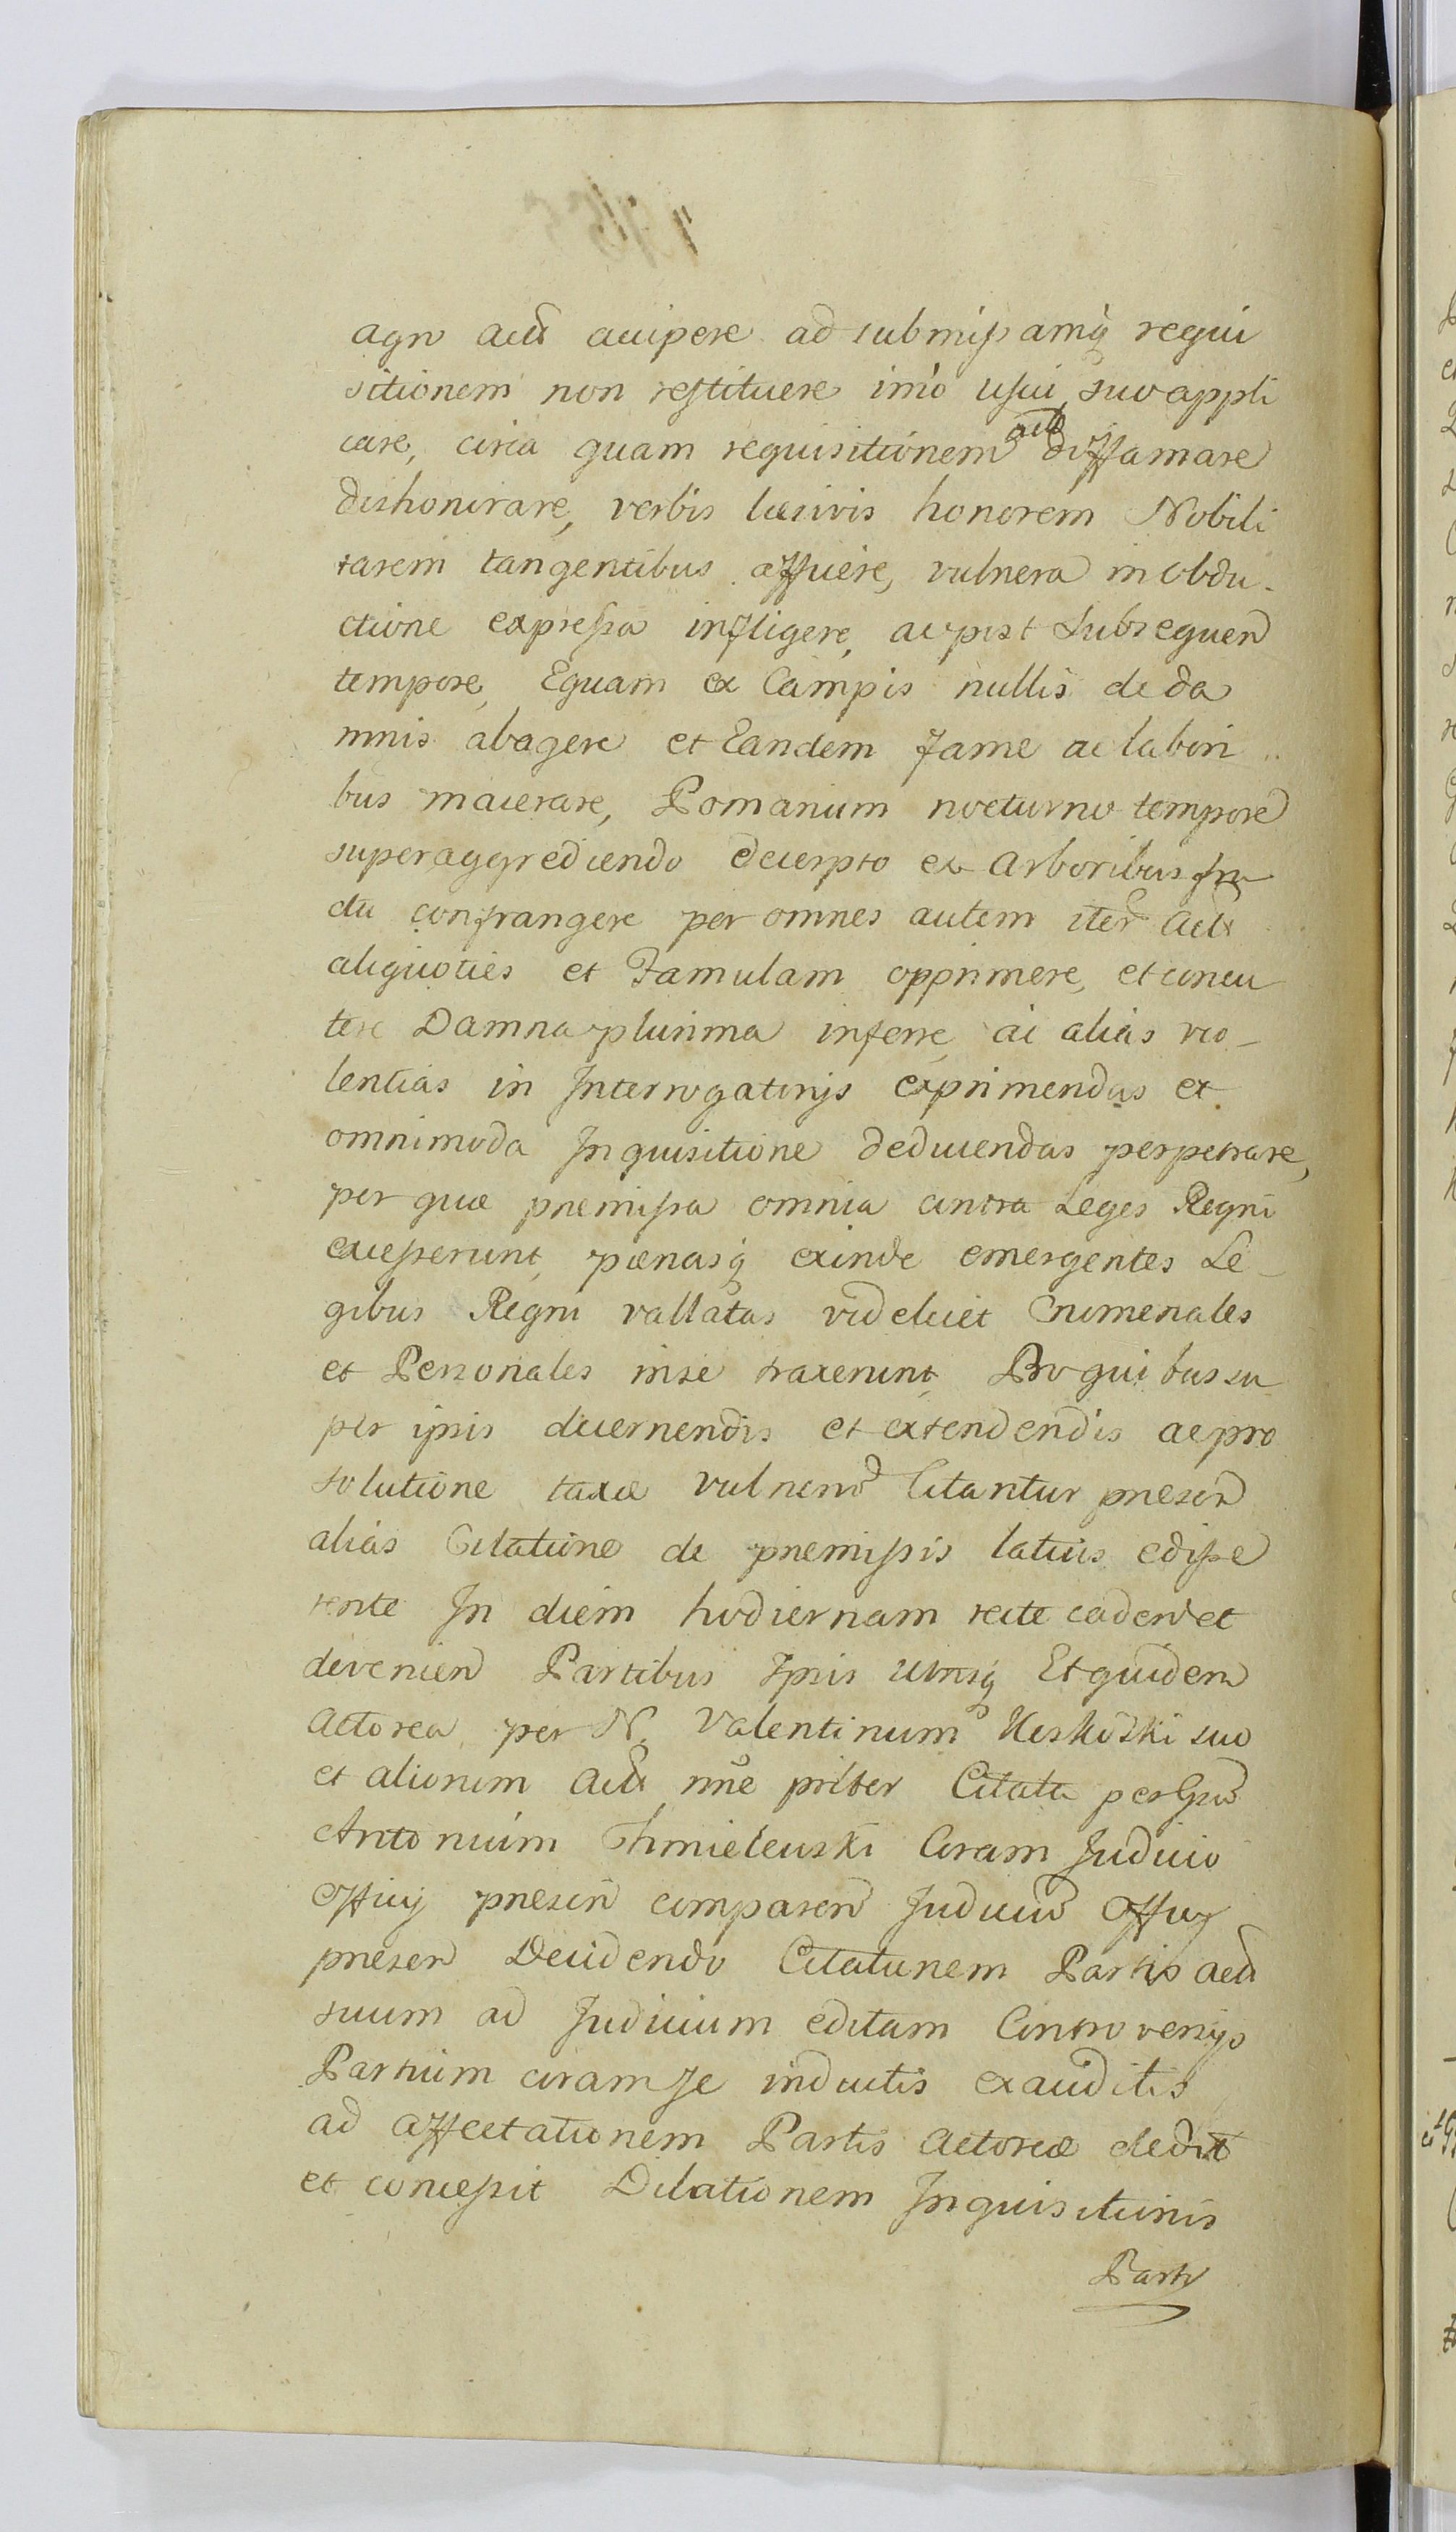 agro actt accipere ad submissamq requi
sitionem non restituere imo usui suo appli
care, circa quam requisitionem actt diffamare
dishonorare, verbis læsivis honorem Nobili
tarem tangentibus afficere, vulnera in obdu-
ctione expressa infligere, ac post Subsequen
tempore, Equam ex Campis nullis de da
mnis abagere et Eandem fame ac labori
bus macerare, Pomarium nocturno tempore
superaggrediendo decerpto ex Arboribus fru
ctu confrangere per omnes autem iter Actt
aliquoties et Famulam opprimere, et concu
tere Damna plurima inferre, ac alias vio-
lentias in Interrogatorijs exprimendas et
omnimoda Inquisitione deducendas perpetrare,
per quæ præmissa omnia contra Leges Regni
excesserunt, pænasq exinde emergentes Le-
gibus Regni vallatas videlicet Criminales
et Personales in se traxerunt, Pro quibus su
per ipsis decernendis et extendendis ac pro
solutione taxæ vulnerũ Citantur præsen
alias Citatione de præmissis latius edisse
rente In diem hodiernam recte caden et
devenien Partibus Ipsis utrisq Et quidem
Actorea per N. Valentinum suo
et aliorum Actt nñe priter Citata per Gsũ
Antonium Chmielewski Coram Judicio
Officij præsen comparen Judiciũ Officij
præsen Decidendo Citationem Partis actt
suum ad Judicium editam Controversijs
Partium coram se inductis exauditis
ad affectationem Partis Actoreæ dedit
et concessit Dilationem Inquisitionis
Parti